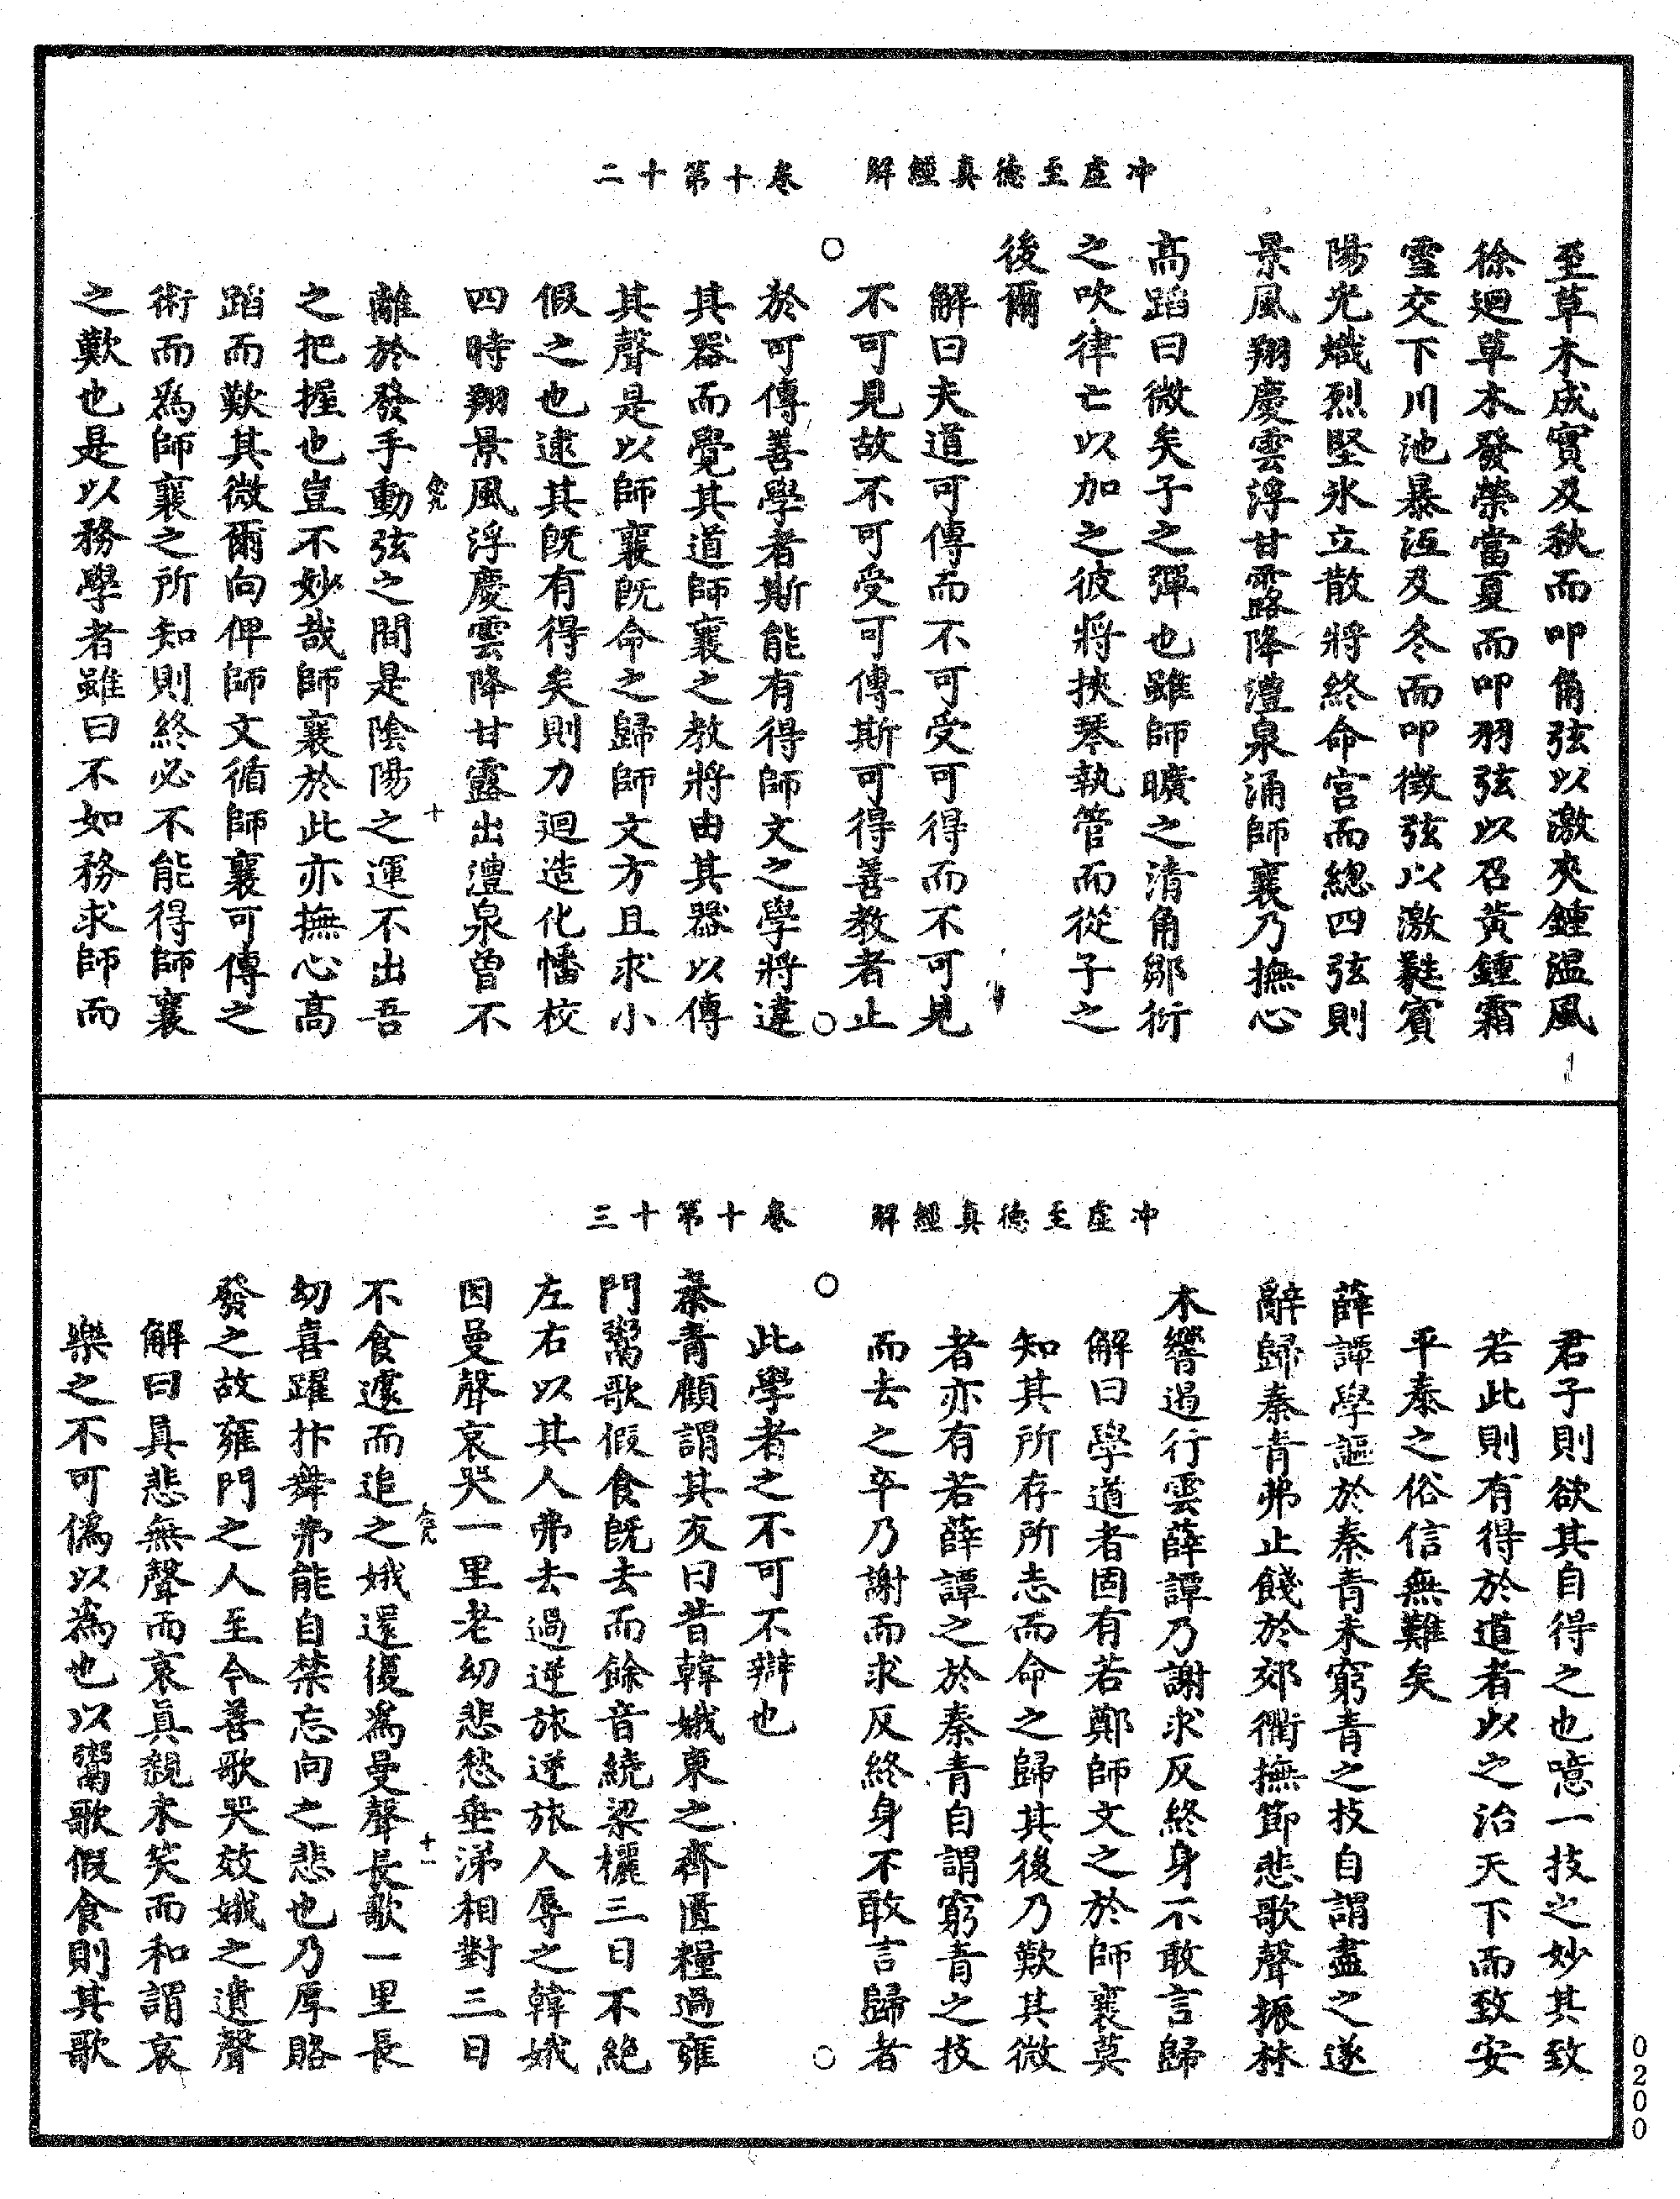 冲虛至德真經解　卷十第十二
至草木成實及秋而叩角弦以激夾鍾溫風
徐迴草木發榮當夏而叩羽弦以召黃鍾霜
雪交下川池暴沍及冬而叩徵弦以激蕤賓
陽光熾烈堅氷立散將終命宮而總四弦則
景風翔慶雲浮甘露降澧泉涌師襄乃撫心
高蹈曰微矣子之彈也雖師曠之清角鄒衍
之吹律亡以加之彼將挾琴執管而從子之
後爾
解曰夫道可傳而不可受可得而不可見
不可見故不可受可傳斯可得善教者止
於可傳善學者斯能有得師文之學將違
其器而覺其道師襄之教將由其器以傳
其聲是以師襄旣命之歸師文方且求小
假之也逮其旣有得矣則力迴造化幡校
四時翔景風浮慶雲降甘露出澧泉曾不
離於發手動弦之間是陰陽之運不出吾
之把握也豈不妙哉師襄於此亦撫心高
蹈而歎其微爾向俾師文循師襄可傳之
術而為師襄之所知則終必不能得師襄
之歎也是以務學者雖曰不如務求師而
十
冲虛至德真經解　卷十第十三
君子則欲其自得之也噫一技之妙其致
若此則有得於道者以之治天下而致安
平泰之俗信無難矣
薛譚學謳於秦青未窮青之技自謂盡之遂
辭歸秦青弗止餞於郊衢撫節悲歌聲振林
木響遏行雲薛譚乃謝求反終身不敢言歸
解曰學道者固有若鄭師文之於師襄莫
知其所存所志而命之歸其後乃歎其微
者亦有若薛譚之於秦青自謂窮青之技
而去之卒乃謝而求反終身不敢言歸者
此學者之不可不辯也
秦青顧謂其友曰昔韓娥東之齊匱糧過雍
門鬻歌假食旣去而餘音繞梁欐三日不絕
左右以其人弗去過逆旅逆旅人辱之韓娥
因曼聲哀哭一里老幼悲愁垂涕相對三日
不食遽而追之娥還復為曼聲長歌一里長
幼喜躍抃舞弗能自禁忘向之悲也乃厚賂
發之故雍門之人至今善歌哭效娥之遺聲
解曰真悲無聲而哀真親未笑而和謂哀
樂之不可偽以為也以鬻歌假食則其歌
十一
0200